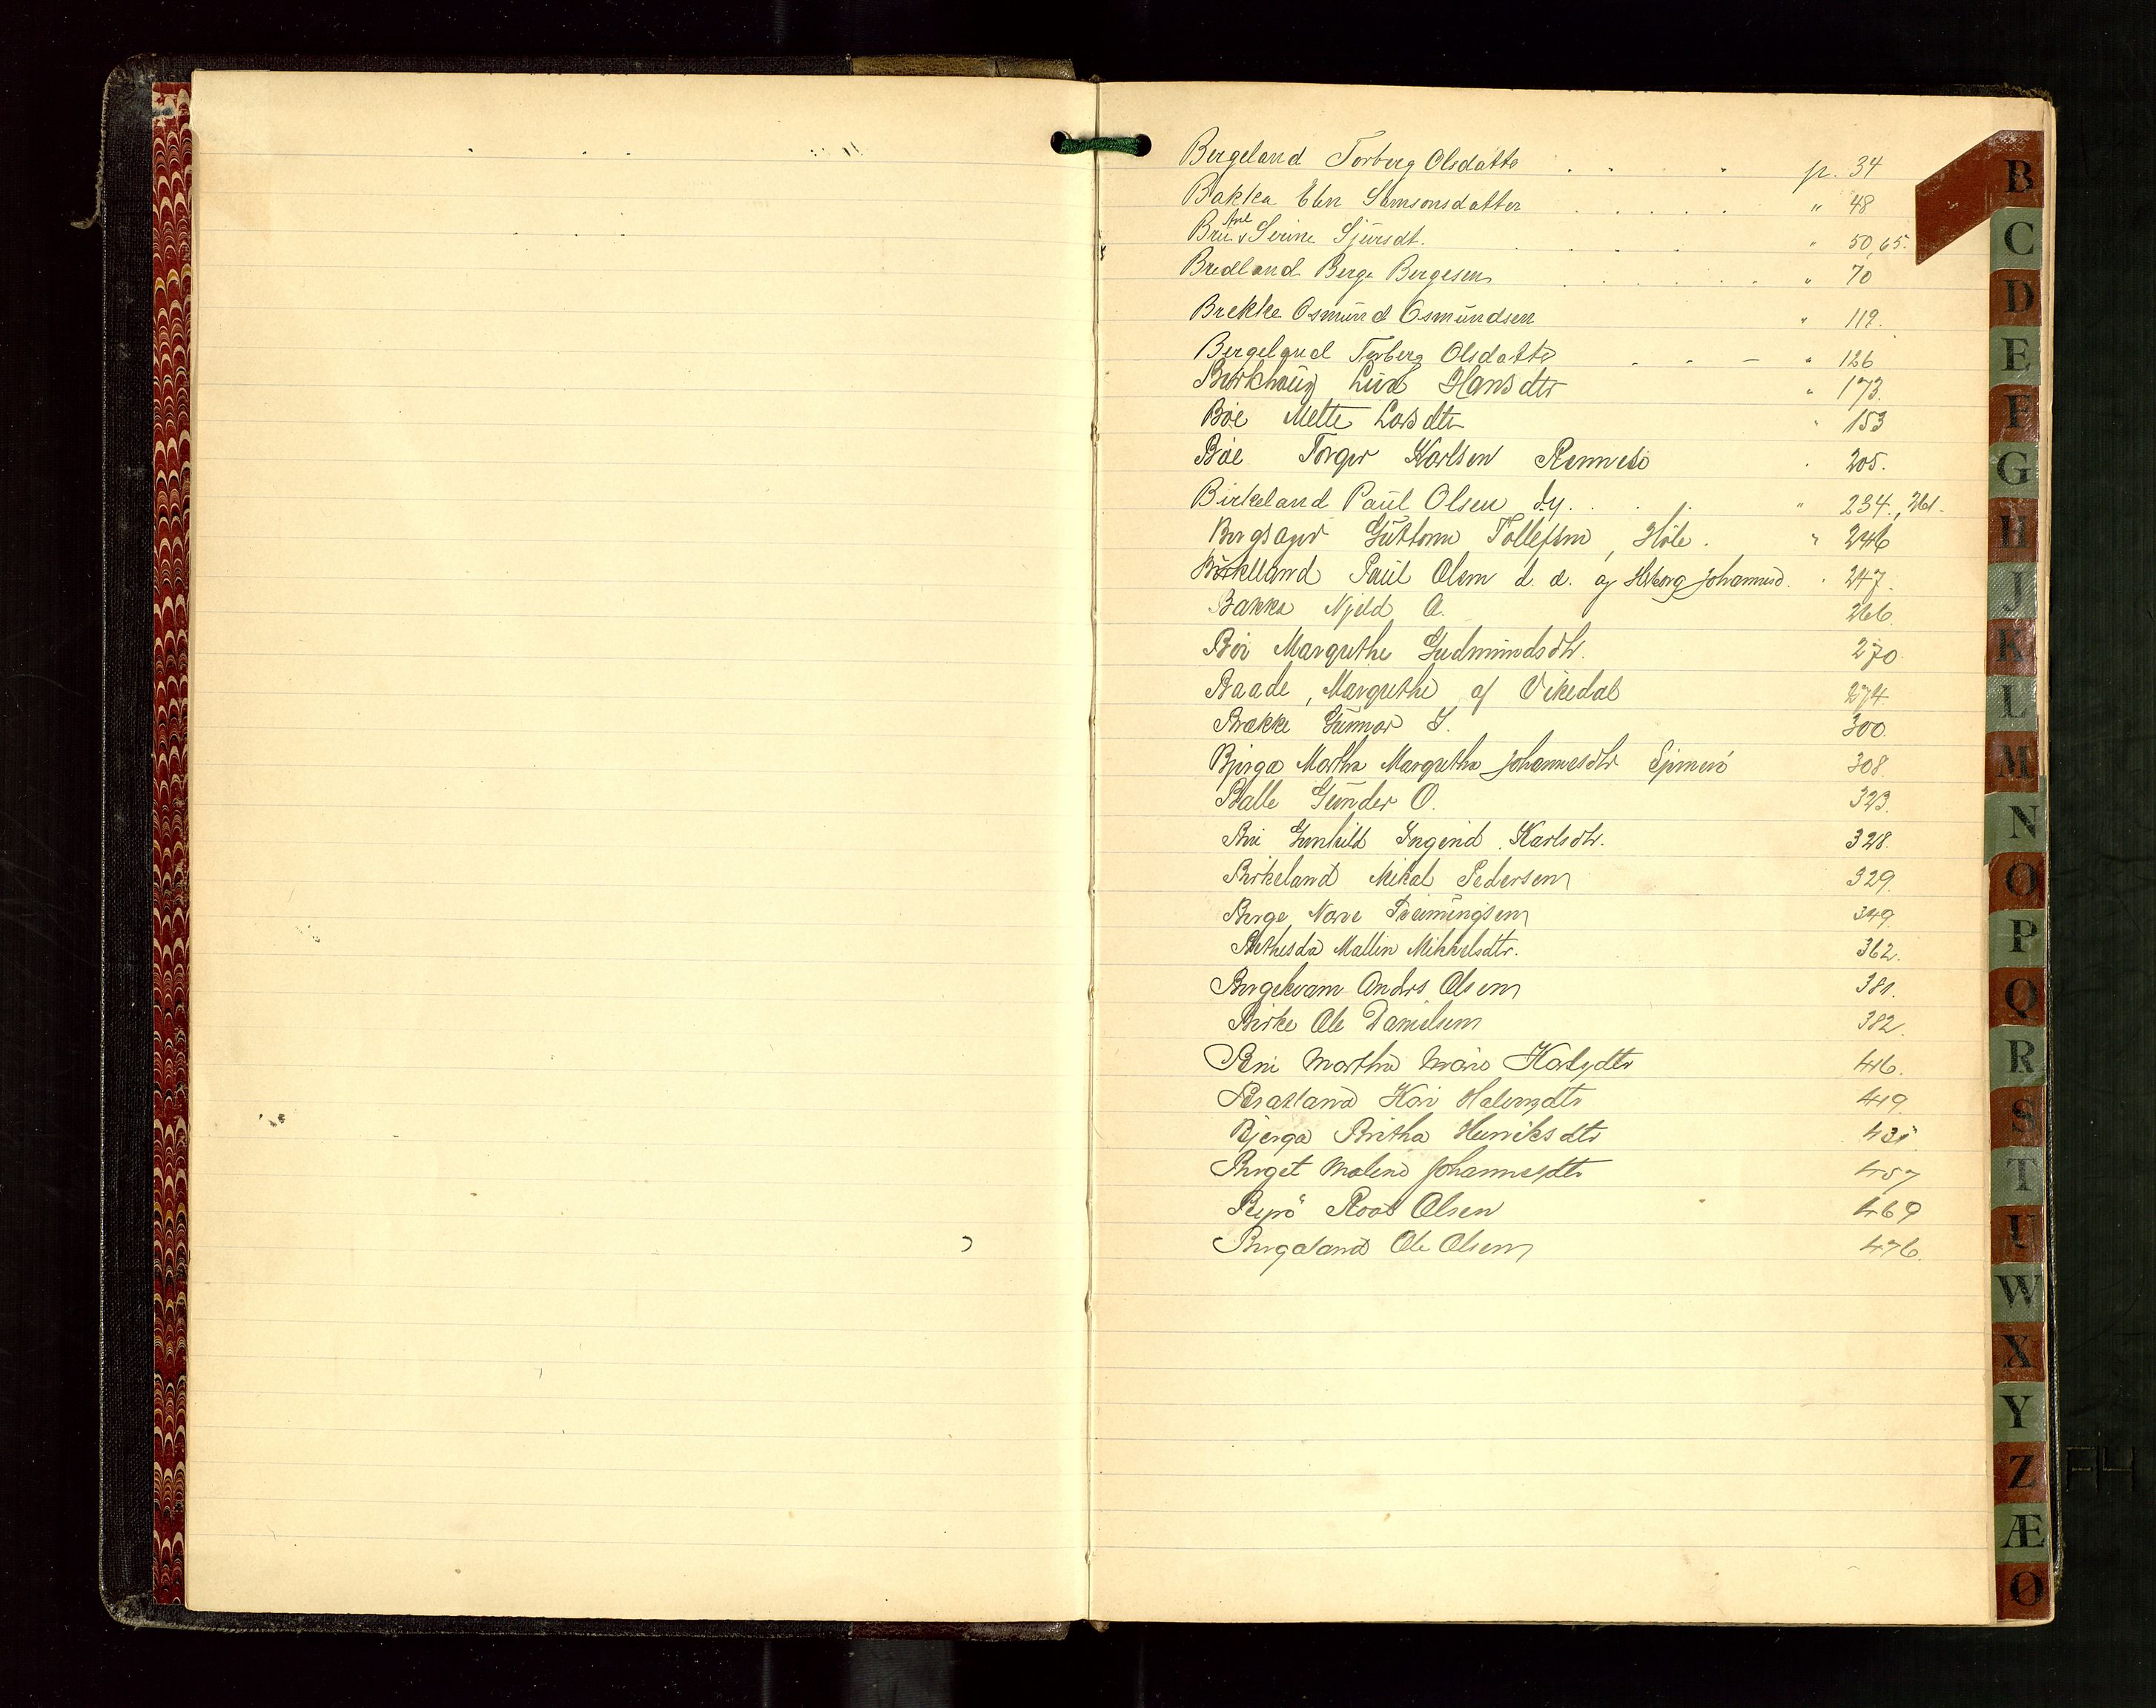 Bergeland Torberg Olsdatte . . . p. 34
Bakka Elen Samsonsdatter . . . . . " 48
Bru Ane & Serine Sjursdt. . . . . " 50, 65.
Bredland Berge Bergesen . . . . . . " 70
Brekke Osmund Osmundsen " 119.
Bergeland Torberg Olsdatte . - - " 126
Birkhaug Hansdtr " 173.
Böe Mette Larsdtr " 153
Böe Torger Karlsen Rennesö " 205.
Birkeland Paul Olsen d.y. . . . " 234., 261.
Bergsager Guttorm Tollefsen, Höle. " 246
Birkeland Paul Olsen d. æ. og Johannesd. " 247.
Bakka Njeld A. 266.
Böe Margrethe Gudmundsdtr. 270.
Baade, Margrethe af Vikedal 274
Brække Gunnar I. 300.
Bjerga Martha Margretha Johannesdtr Sjernerö 308
Balle Gunder O. 323.
Bru Gunhild Ingerid Karlsdtr. 328.
Birkeland Mikal Pedersen 329.
Berge Narve 349
Bethesda Mallin Mikkelsdtr. 362.
Bergekvam Anders Olsen 381.
Birke Ole Danielsen 382.
Bru Martha Karlsdtr 416.
Bratland Kari Halvorsdtr 419.
Bjerga Britha Henriksdtr
Berget Malene Johannesdtr 457
Byrö Roar Olsen 469
Bergeland Ole Olsen 476.
B
C
D
E
F
G
H
J
K
L
M
N
O
P
Q
R
S
T
U
W
X
Y
Z
Æ
Ø